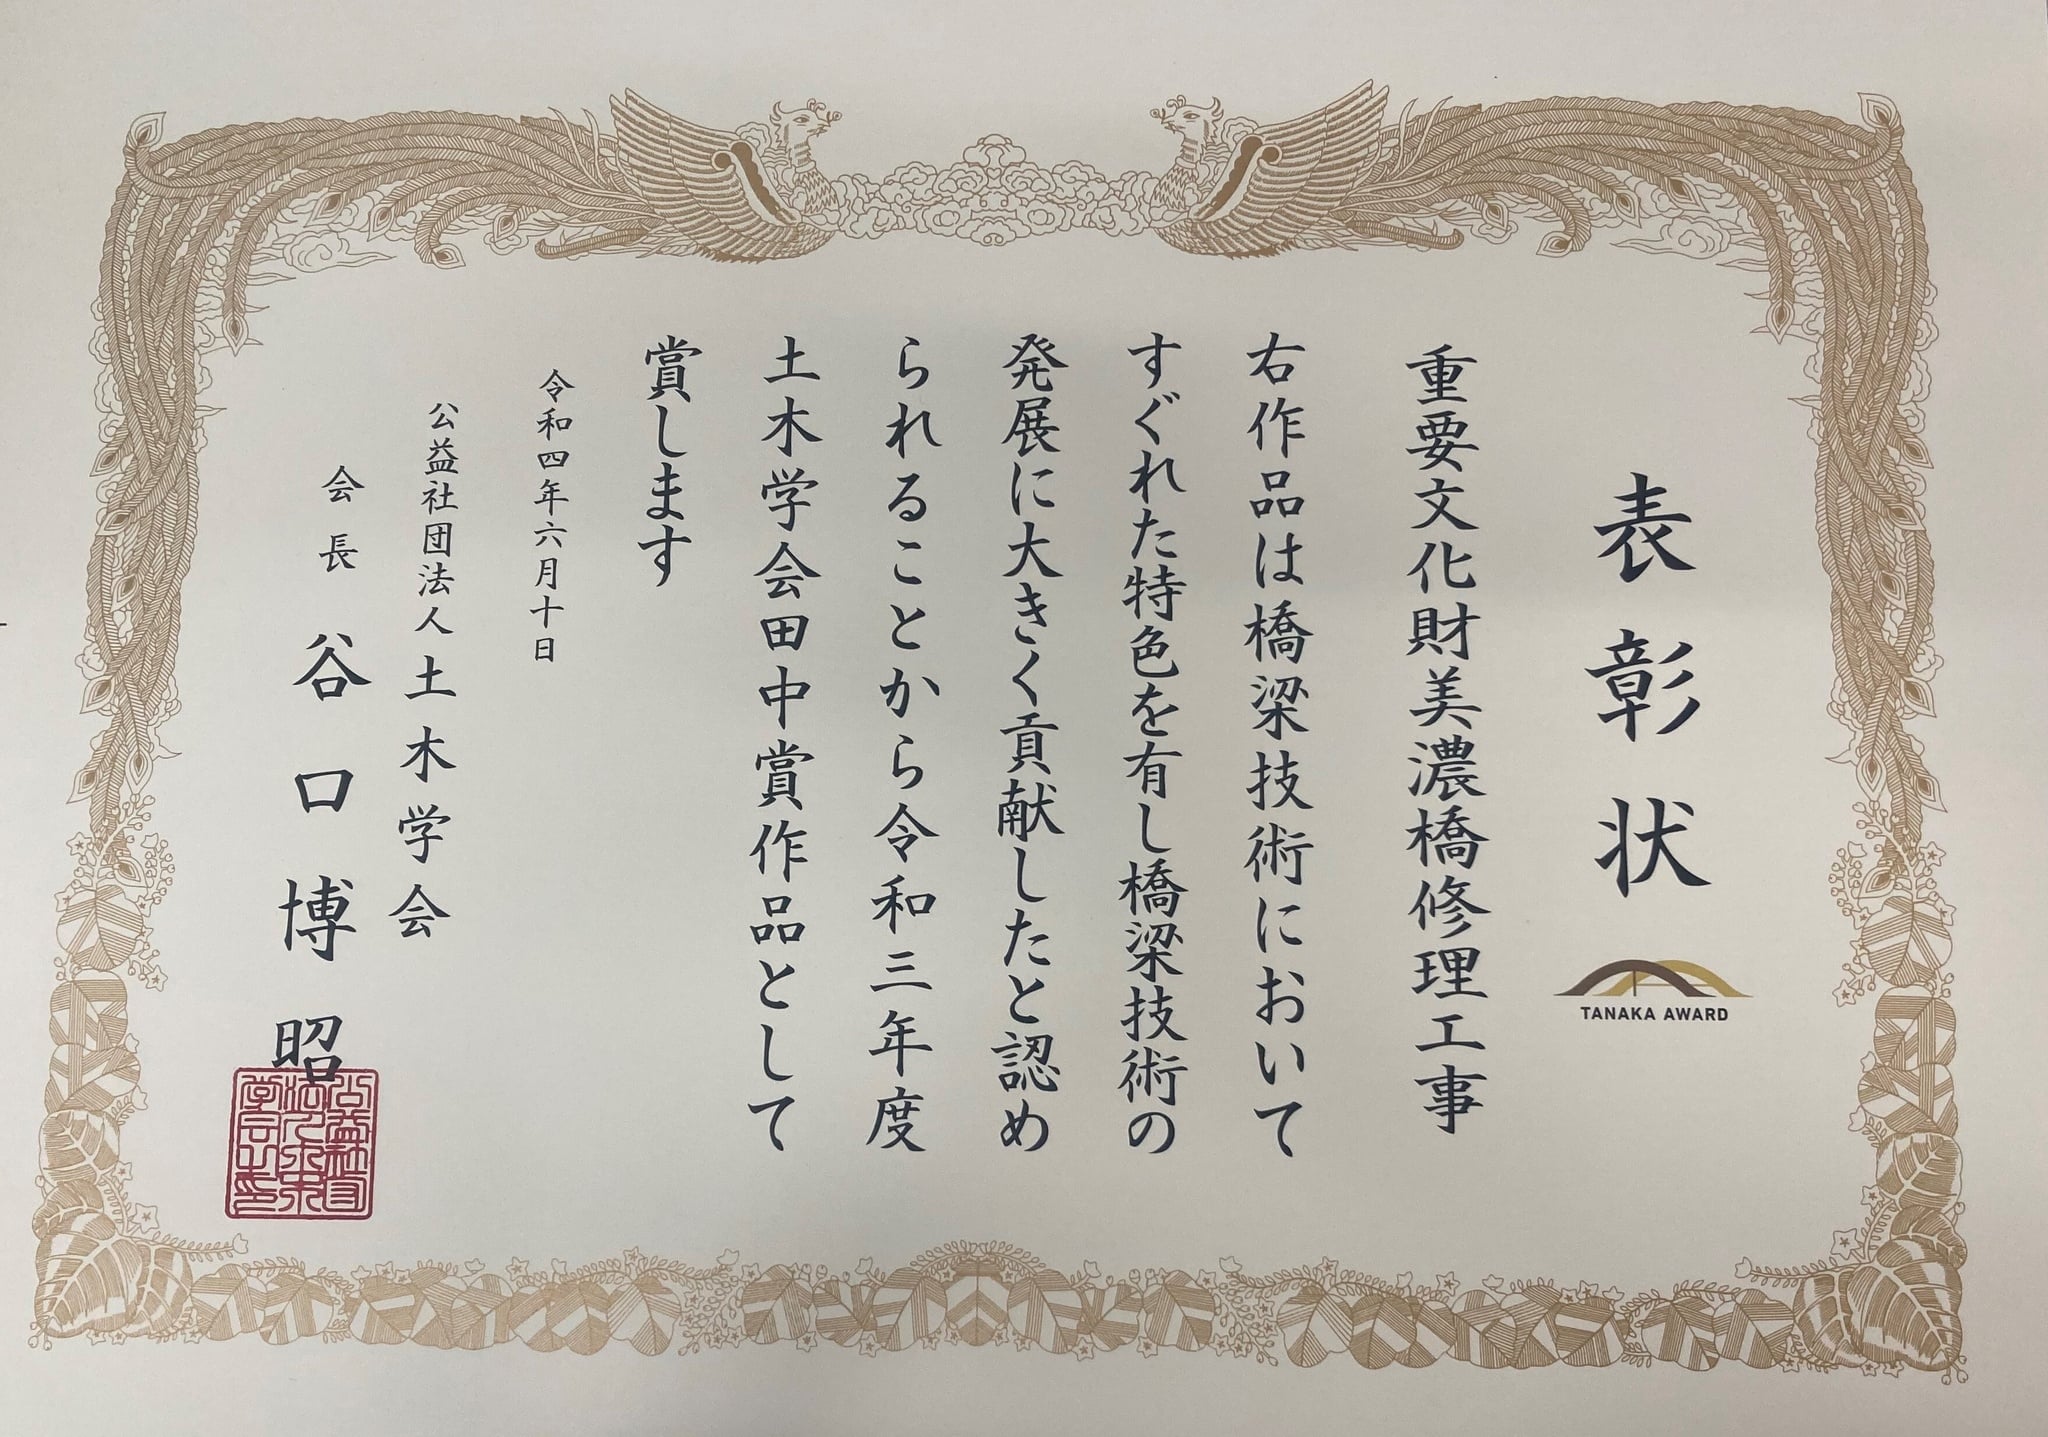 表彰状
TANAKA AWARD
重要文化財美濃橋修理工事
右作品は橋梁技術において
すぐれた特色を有し橋梁技術の
発展に大きく貢献したと認め
られることから令和三年度
土木学会田中賞作品として
賞します
令和四年六月十日
公益社団法人土木学会
会長 谷口博昭